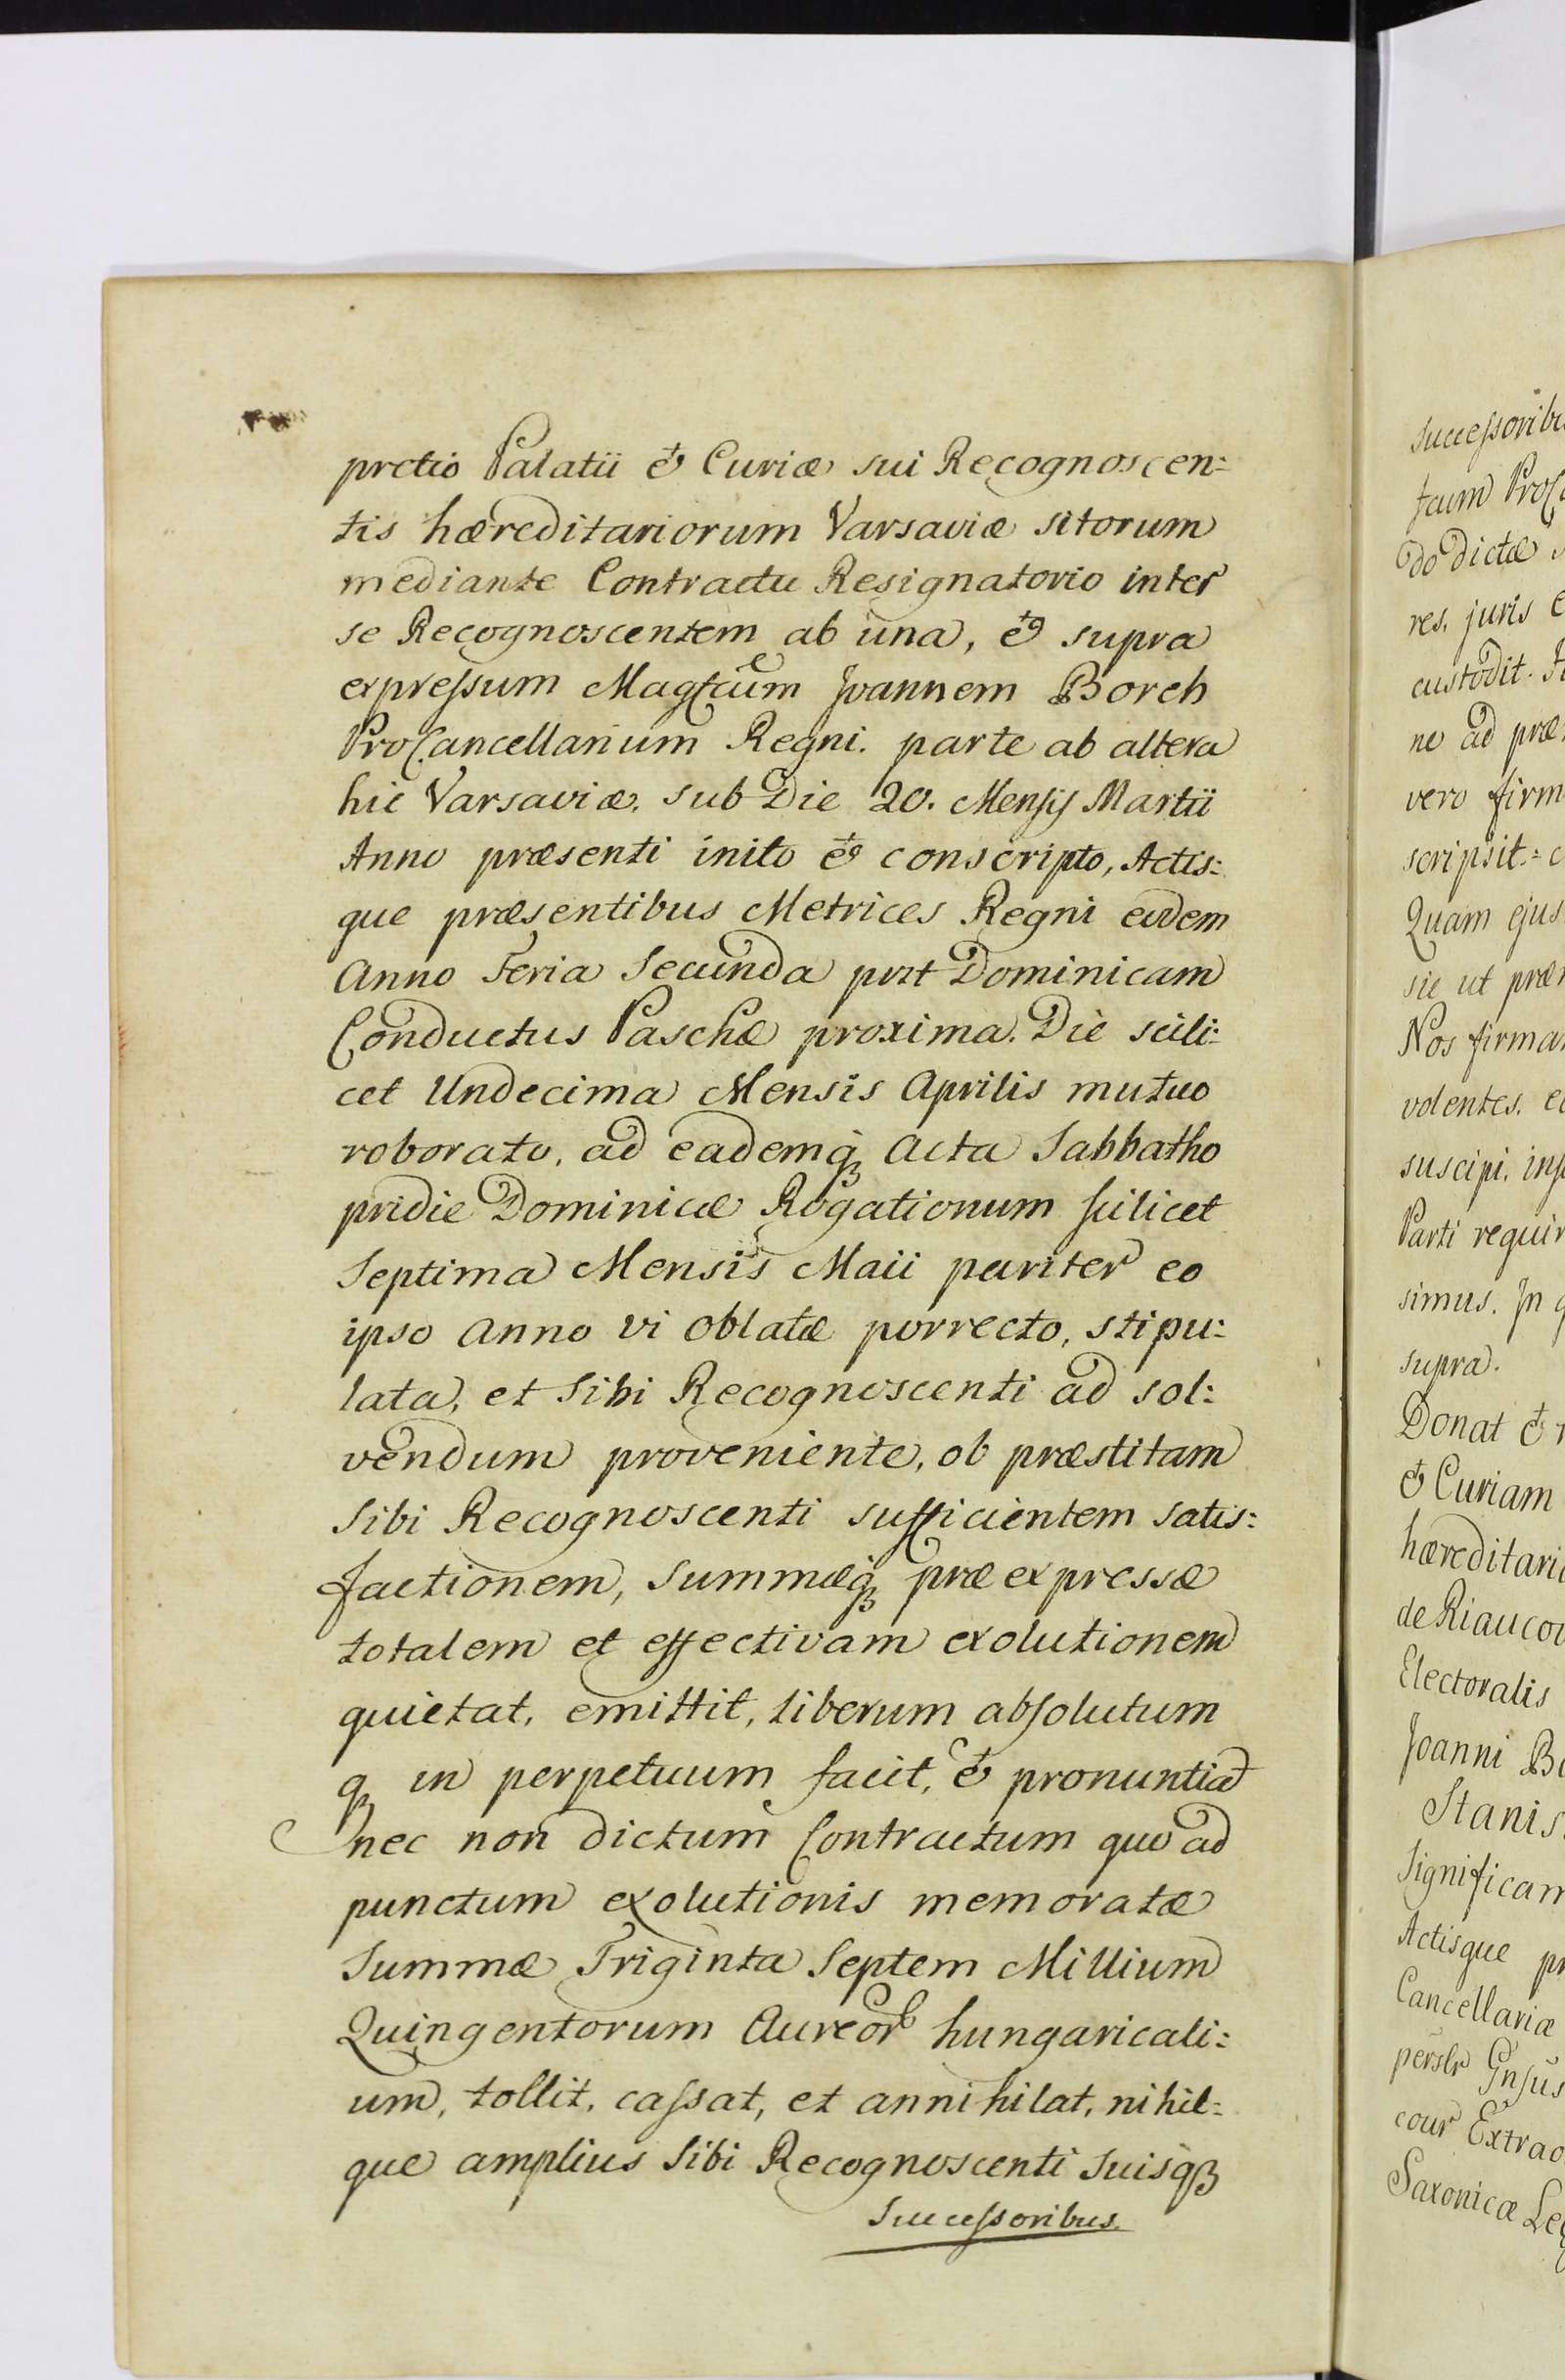 pretio Palatii & Curiæ sui Recognoscen:
tis hæreditariorum Varsaviæ sitorum
mediante Contractu Resignatorio inter
se Recognoscentem ab una, & supra
expreſsum Magfcum Joannem Borch
ProCancellarium Regni. parte ab altera
hic Varsaviæ. sub Die 20. Menſis Martii
Anno præsenti inito & conscripto, Actis:
que præsentibus Metrices Regni eodem
Anno Feria Secunda post Dominicam
Conductus Paschæ proxima. Die scili:
cet Undecima Mensis Aprilis mutuo
roborato, ad eademq₃ Acta Sabbatho
pridie Dominicæ Rogationum ſcilicet
Septima Mensis Maii pariter eo
ipso Anno vi Oblatæ porrecto, stipu:
lata, et Sibi Recognoscenti ad sol:
vendum proveniente, ob præstitam
Sibi Recognoscenti sufficientem satis:
factionem, Summæq₃ præexpressæ
totalem et effectivam exolutionem
quietat, emittit, liberum abſolutum
q₃ in perpetuum facit, & pronuntiat
nec non dictum Contractum quo ad
punctum exolutionis memoratæ
Summæ Triginta Septem Millium
Quingentorum Aureor hungaricali:
um, tollit, caſsat, et annihilat, nihil:
que amplius Sibi Recognoscenti Suisq₃
Succeſsoribus.
Succeſsoribu
fcum ProC
do dictæ
res, juris
custodit.
ne ad præ
vero firm
scripsit.=
Quam ejus
sic ut præ
Nos firma
volentes.
suscipi. inſ
Parti requir
simus. Jn
supra.
Donat &
& Curiam
hæreditari
de Riaucou
Electoralis
Joanni Bo
Stanis
Significam
Actisque pr
Cancellariæ
perslr Gnſus
cour Extrao
Saxonicæ Leg